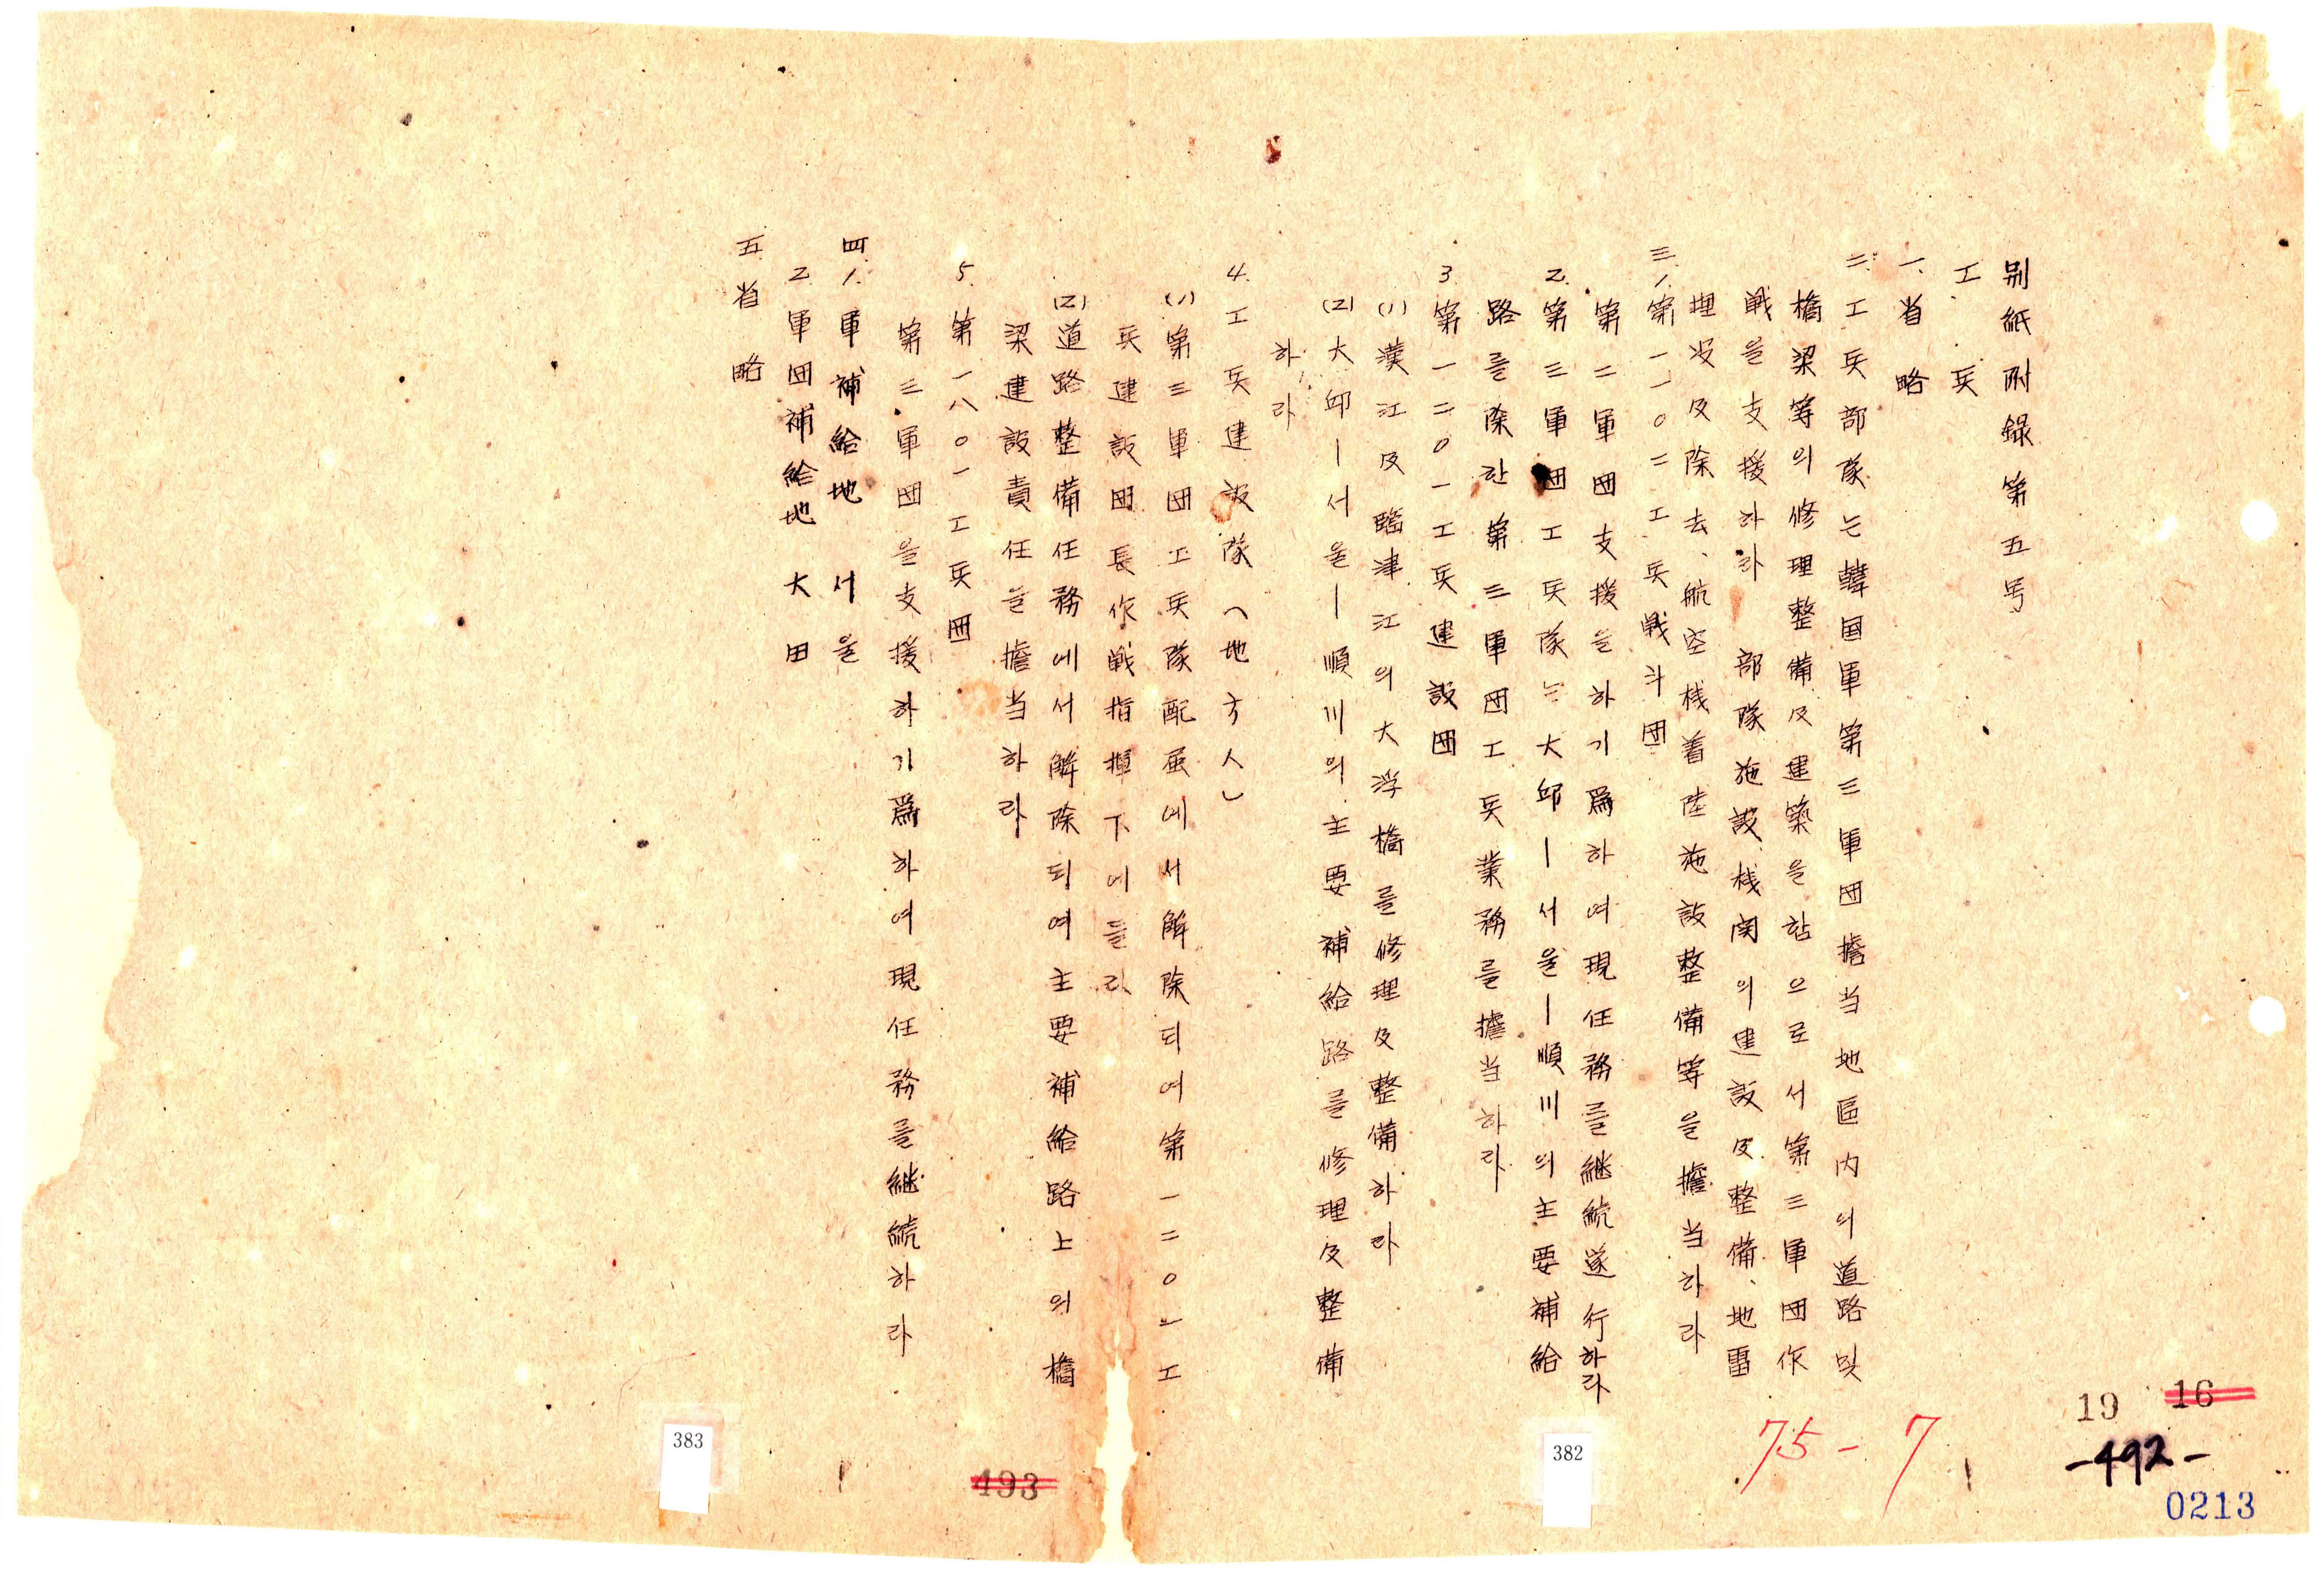 別紙附錄第五号
工兵
一. 省略
二. 工兵部隊는 韓国軍第三軍団擔当地區内의 道路 및
橋梁等의 修理整備及建築을 함으로서 第三軍団作
戦을 支援하라 部隊施設機関의 建設及整備、地雷
埋没及除去、航空機着陸施設整備等을 擔当하라
三. 1. 第一一〇二工兵戦斗団
第二軍団支援을 하기 爲하여 現任務를 継続遂行하라
2. 第三軍団工兵隊는 大邱ー서울ー順川의 主要補給
路를 除한 第三軍団工兵業務를 擔当하라
3. 第一二〇一工兵建設団
(1) 漢江及臨津江의 大浮橋를 修理及整備하라
(2) 大邱ー서울ー順川의 主要補給路를 修理及整備
하라
4. 工兵建設隊 (地方人)
(1) 第三軍団工兵隊配屈에서 解除되여 第一二〇一工
兵建設団長作戦指揮下에 들라
(2) 道路整備任務에서 解除되여 主要補給路上의 橋
梁建設責任을 擔当하라
5. 第一八〇一工兵団
第三軍団을 支援하기 爲하여 現任務를 継続하라
四. 1. 軍補給地 서울
2. 軍団補給地 大田
五 省略
19 16
75-7
-492-
0213
382
383
493